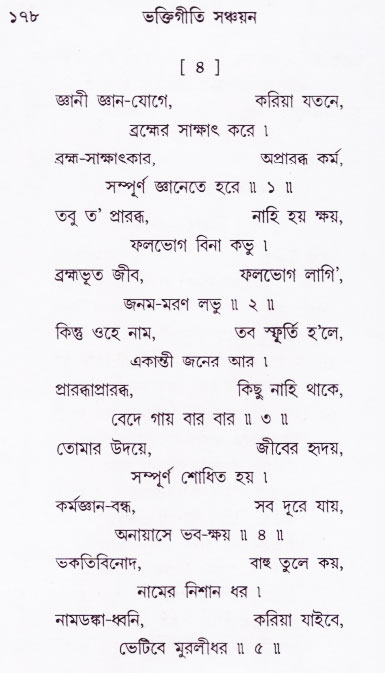 ১৭৮ ভক্তিগীতি সঞ্চয়ন
[ ৪ ]
জ্ঞানী জ্ঞান-যোগে, করিয়া যতনে,
ব্রহ্মের সাক্ষাৎ করে ।
ব্রহ্ম-সাক্ষাৎকার, অপ্রারব্ধ কর্ম,
সম্পূর্ণ জ্ঞানেতে হরে ॥ ১ ॥
তবু ত’ প্রারব্ধ, নাহি হয় ক্ষয়,
ফলভোগ বিনা কভু ।
ব্রহ্মভূত জীব, ফলভোগ লাগি’,
জনম-মরণ লভু ॥ ২ ॥
কিন্তু ওহে নাম, তব স্ফূর্তি হ’লে,
একান্তী জনের আর ।
প্রারব্ধাপ্রারব্ধ, কিছু নাহি থাকে,
বেদে গায় বার বার ॥ ৩ ॥
তোমার উদয়ে, জীবের হৃদয়,
সম্পূর্ণ শোধিত হয় ।
কর্মজ্ঞান-বন্ধ, সব দূরে যায়,
অনায়াসে ভব-ক্ষয় ॥ ৪ ॥
ভকতিবিনোদ, বাহু তুলে কয়,
নামের নিশান ধর ।
নামডঙ্কা-ধ্বনি, করিয়া যাইবে,
ভেটিবে মুরলীধর ॥ ৫ ॥